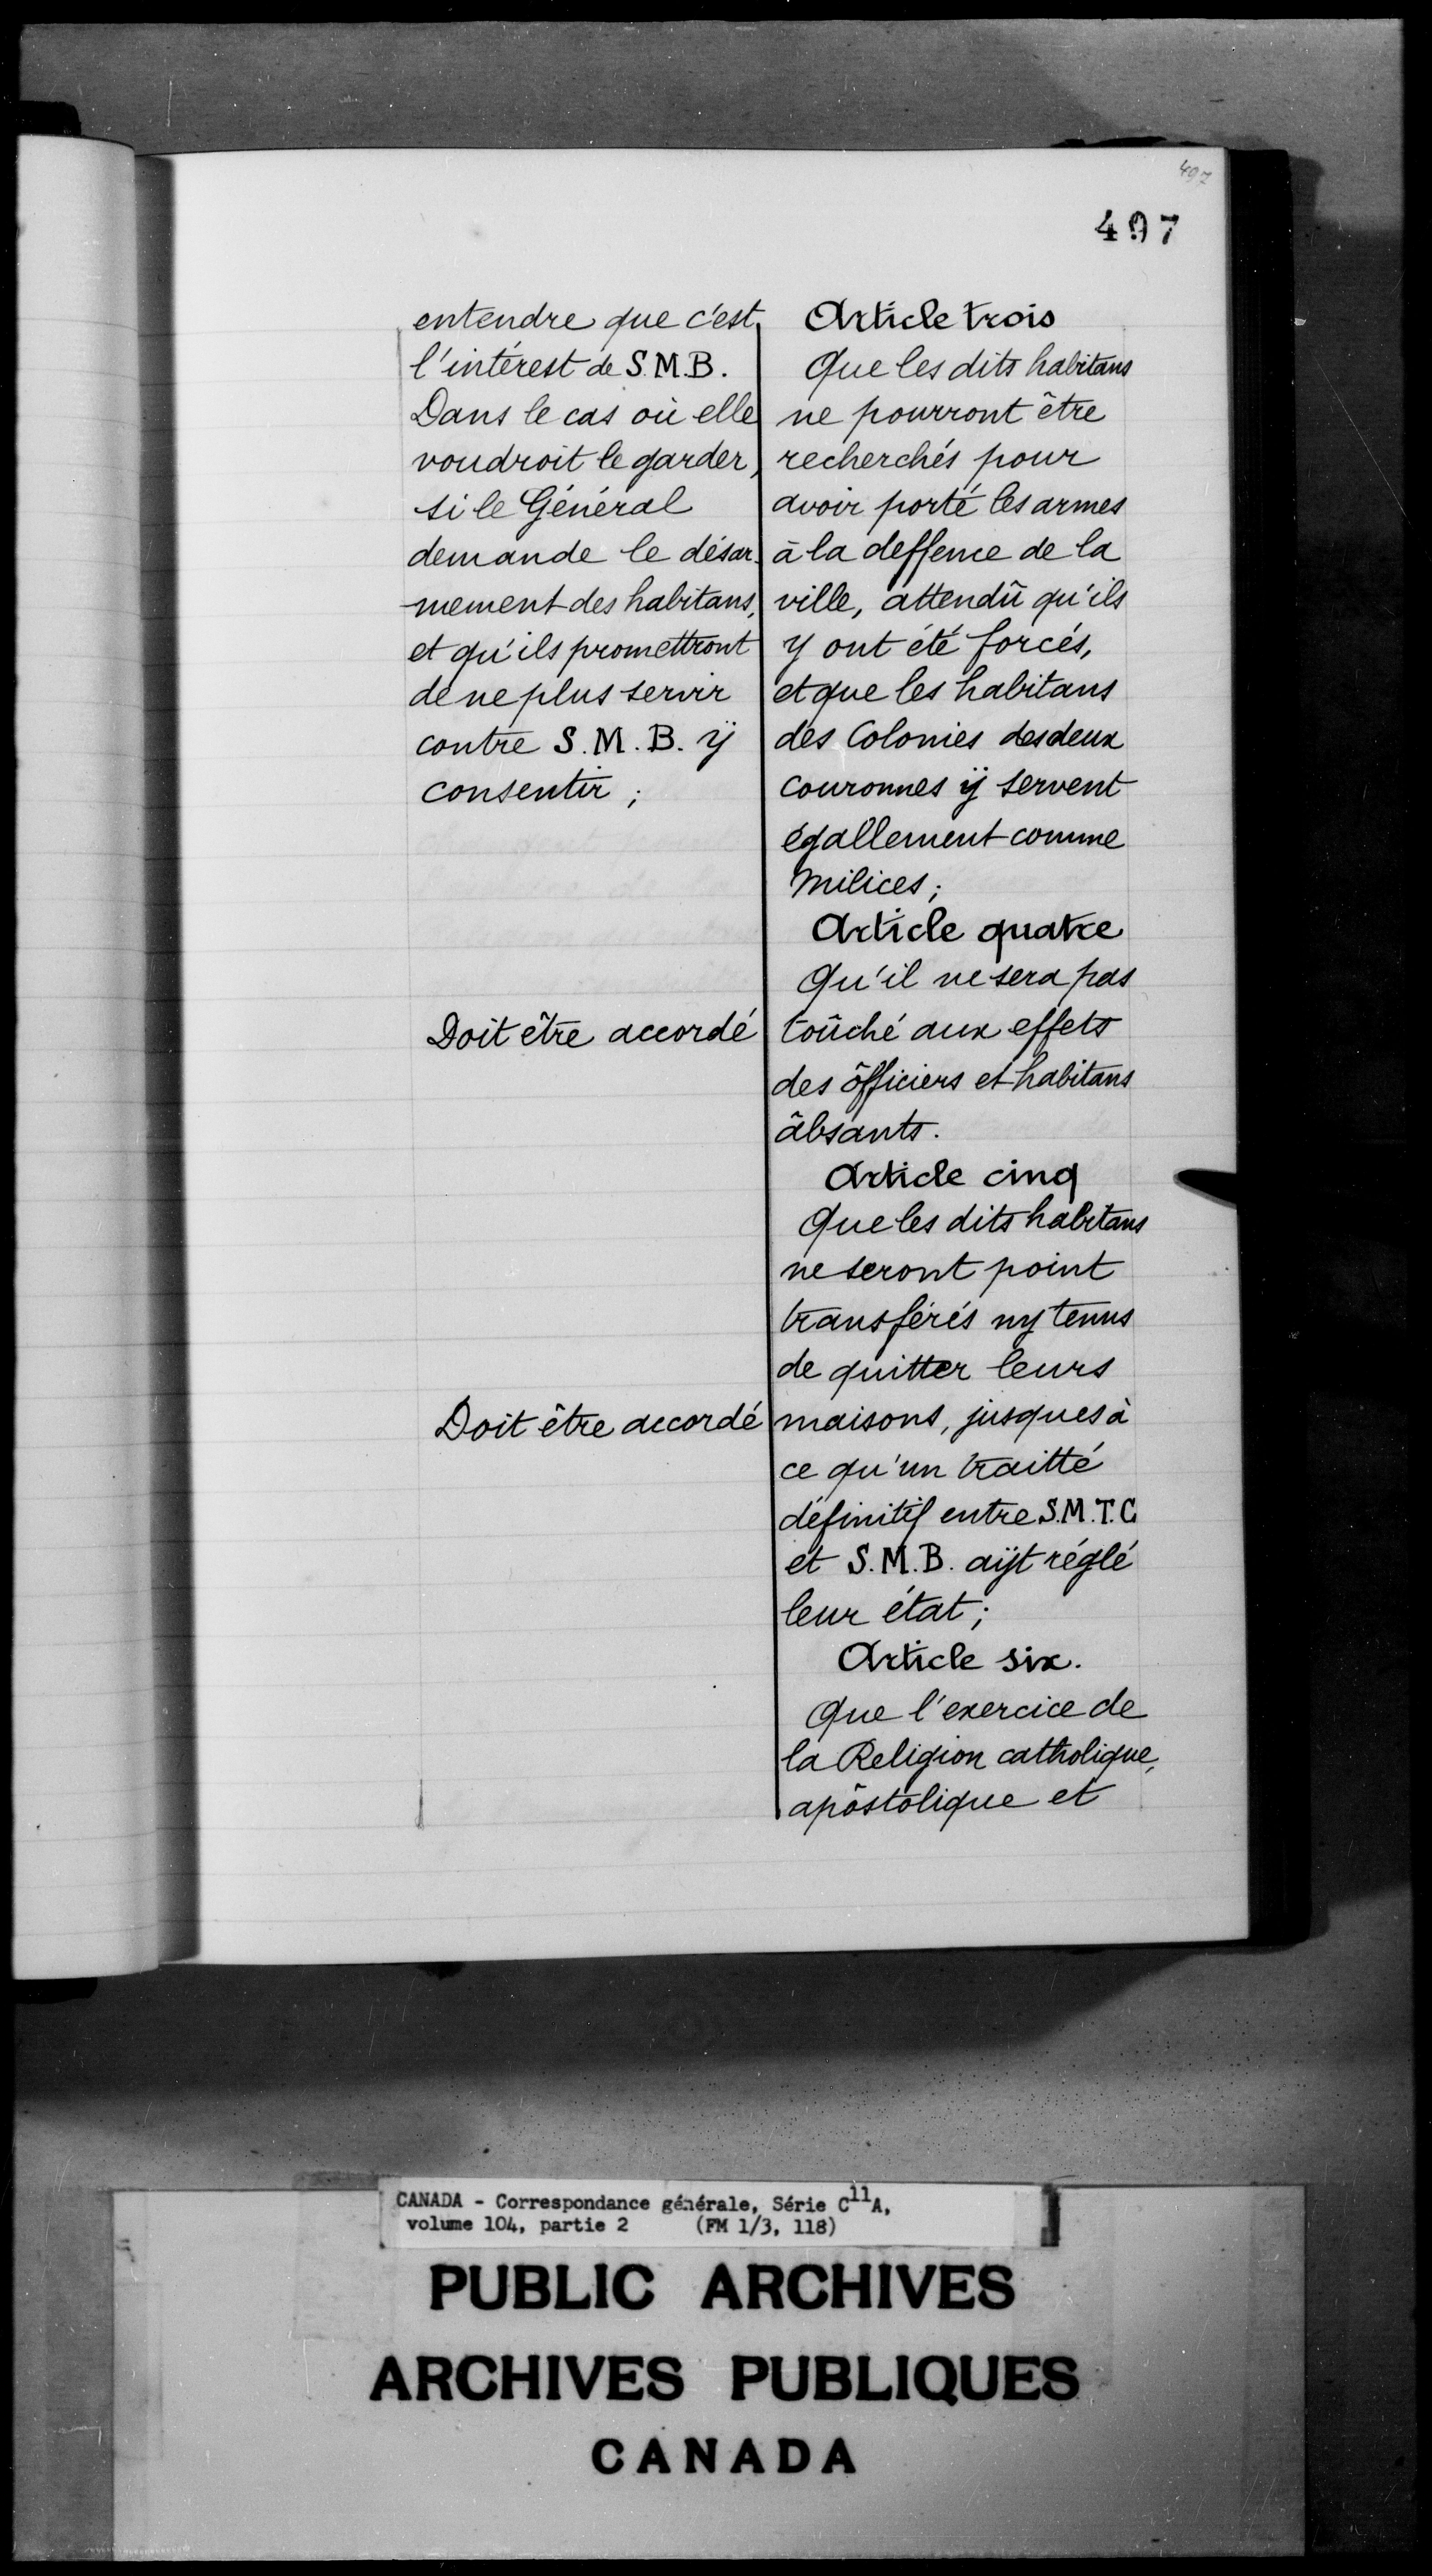 497
497
entendre que c'est
l'intérest de S.M.B.
Dans le cas où elle
voudroit le garder,
si le Général
demande le désar-
mement des habitans,
et qu'ils promettront
de ne plus servir
contre S.M.B. ÿ
consentir ;
Doit être accordé
Doit être accordé
Article trois
Que les dits habitans
ne pourront être
recherchés pour
avoir porté les armes
à la deffence de la
ville, attendû qu'ils
y ont été forcés,
et que les habitans
des Colonies des deux
couronnes ÿ servent
égallement comme
milices ;
Article quatre
Qu'il ne sera pas
toûché aux effets
des ôfficiers et habitans
âbsants.
Article cinq
Que les dits habitans
ne seront point
transférés ny tenus
de quitter leurs
maisons, jusques à
ce qu'un traitté
définitif entre S.M.T.C
et S.M.B. aÿt réglé
leur état ;
Article six.
Que l'exercice de
la Religion catholique,
apôstolique et
CANADA - Correspondance générale, Série C11A,
volume 104, partie 2 (FM 1/3, 118)
PUBLIC ARCHIVES
ARCHIVES PUBLIQUES
CANADA